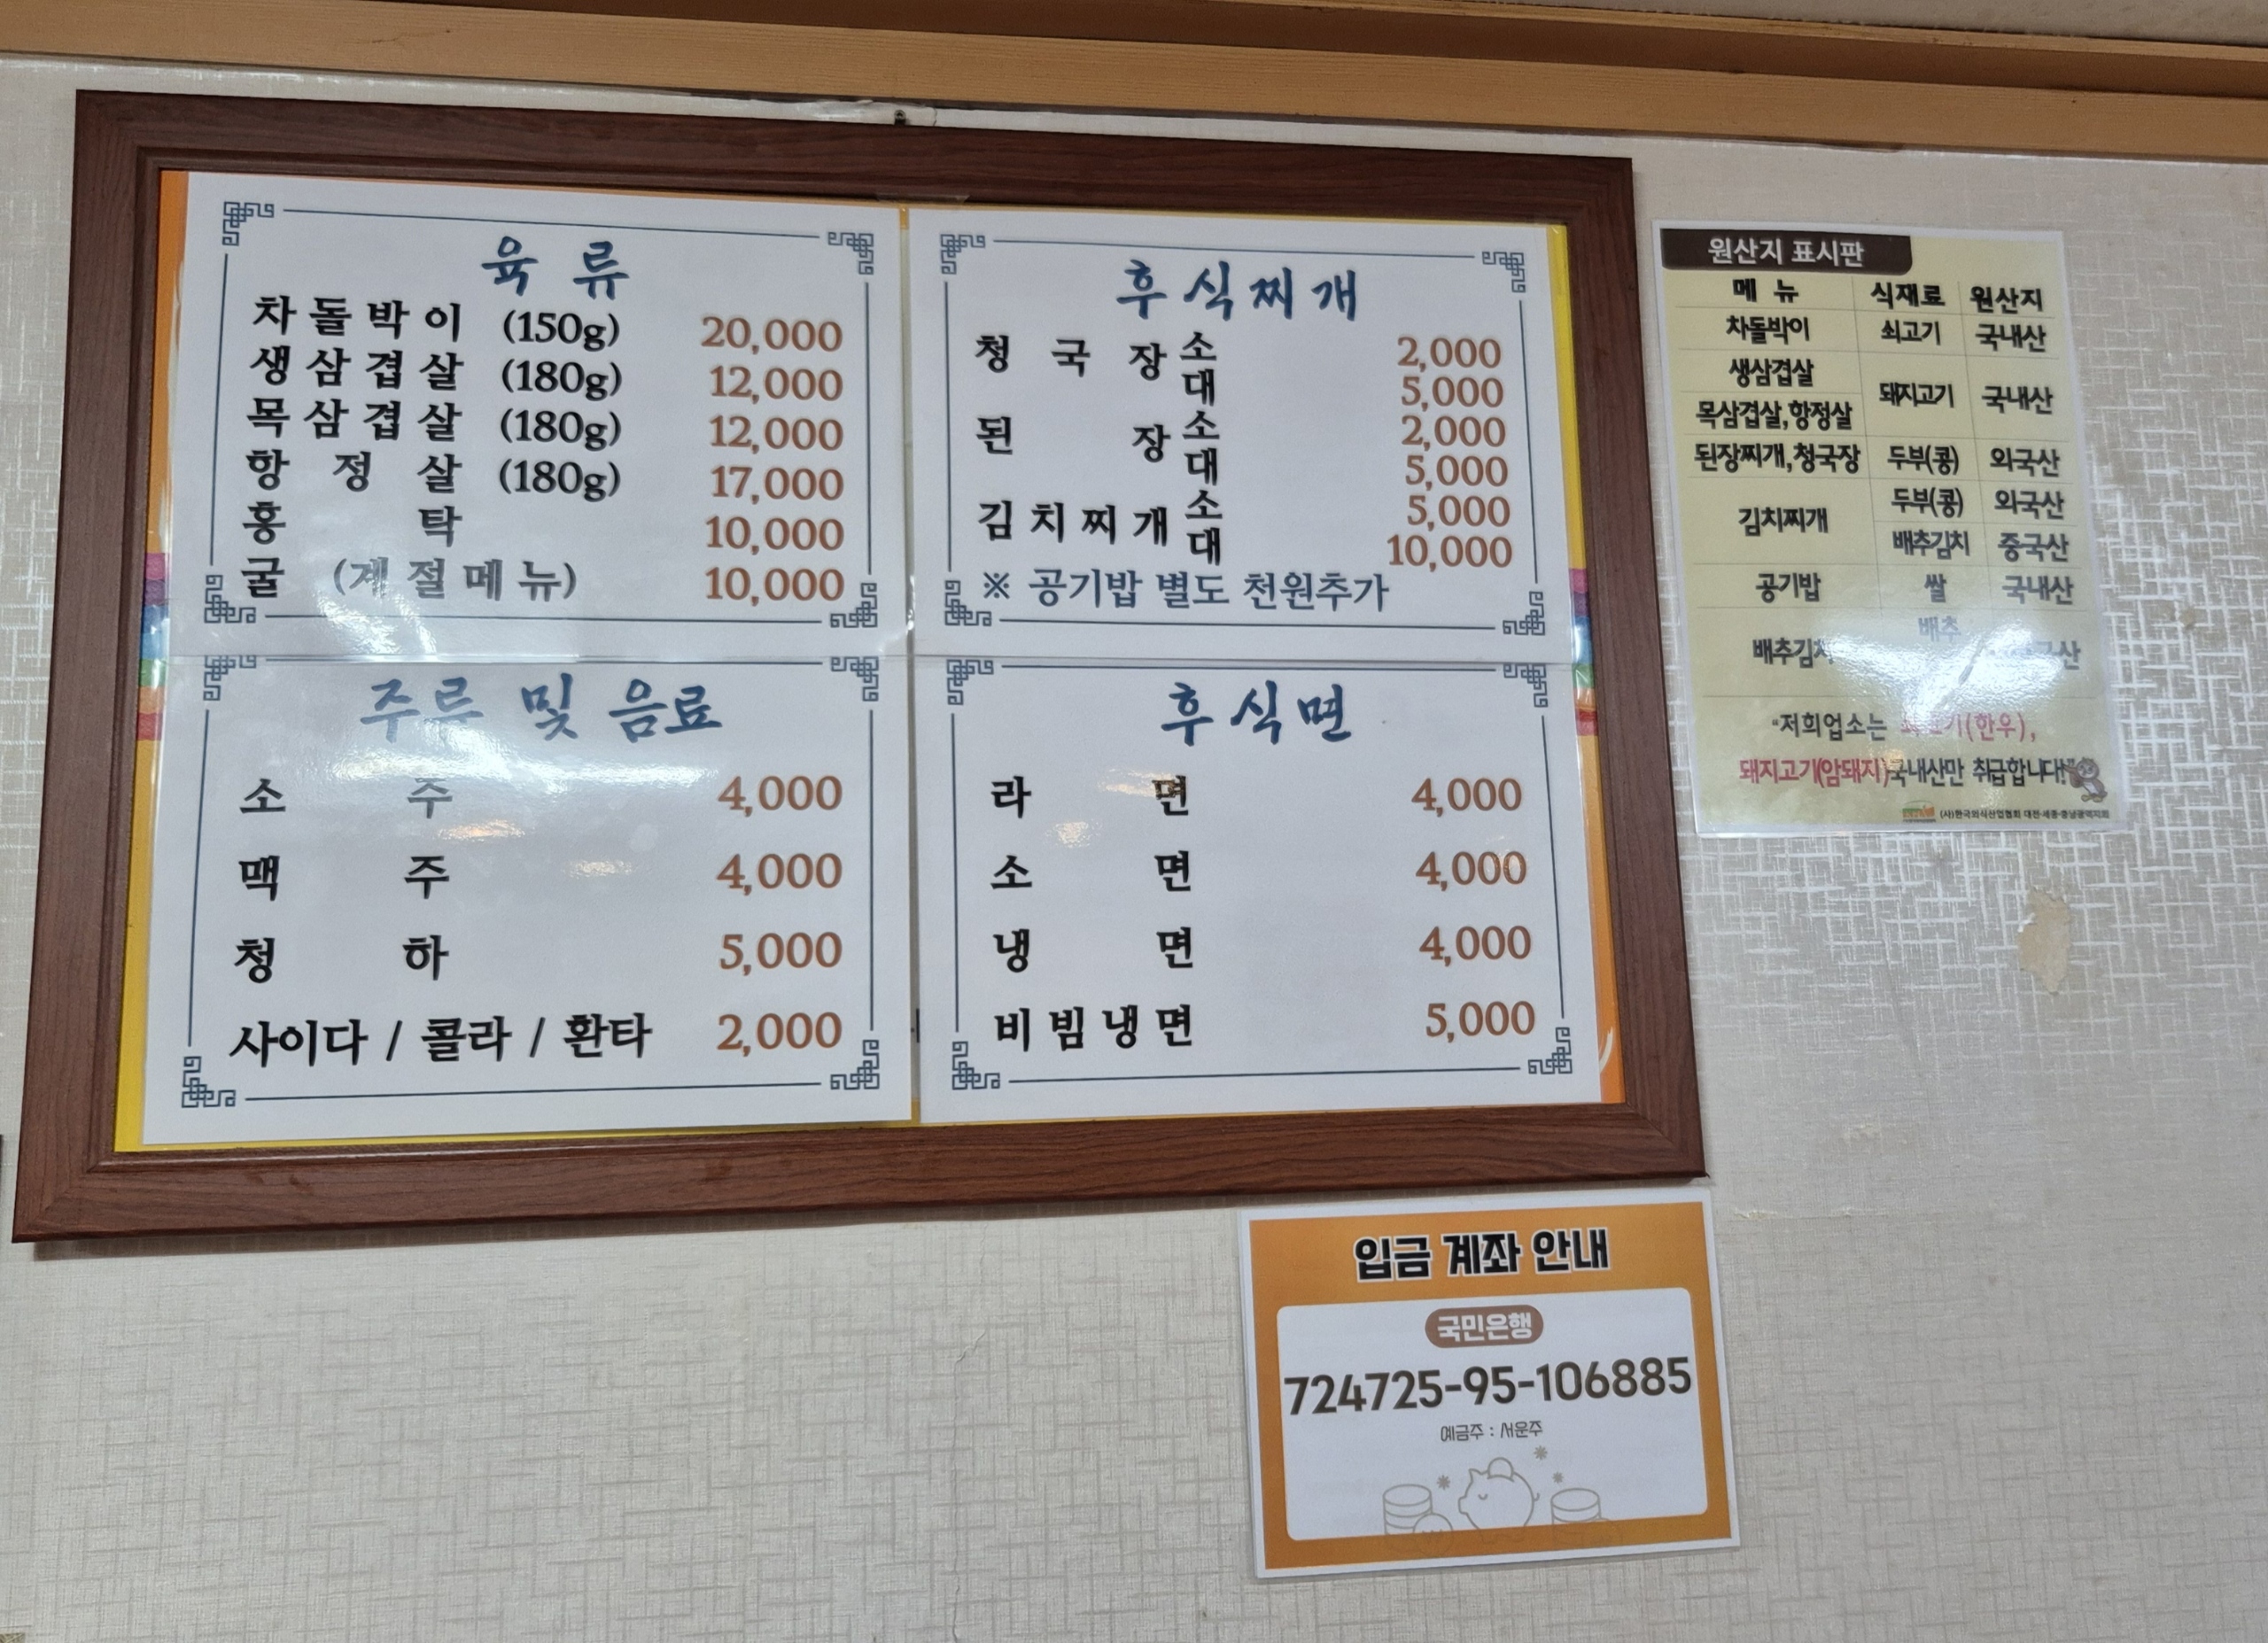 육 류
차돌박이 (150g) 20,000
생삼겹살 (180g) 12,000
목삼겹살 (180g) 12,000
항정살 (180g) 17,000
홍탁 10,000
굴 (계절메뉴) 10,000
후식찌개
청국장 소 2,000
대 5,000
된장 소 2,000
대 5,000
김치찌개 소 5,000
대 10,000
※ 공기밥 별도 천원추가
주류 및 음료
소주 4,000
맥주 4,000
청하 5,000
사이다 / 콜라 / 환타 2,000
후식면
라면 4,000
소면 4,000
냉면 4,000
비빔냉면 5,000
원산지 표시판
메 뉴 식재료 원산지
차돌박이 쇠고기 국내산
생삼겹살
돼지고기 국내산
목삼겹살,항정살
된장찌개,청국장 두부(콩) 외국산
두부(콩) 외국산
김치찌개
배추김치 중국산
공기밥 쌀 국내산
배추
배추김치
"저희업소는 쇠고기(한우),
돼지고기(암돼지)국내산만 취급합니다!"
(사)한국외식산업협회 대전·세종·충남광역지회
입금 계좌 안내
국민은행
724725-95-106885
예금주 : 서운주